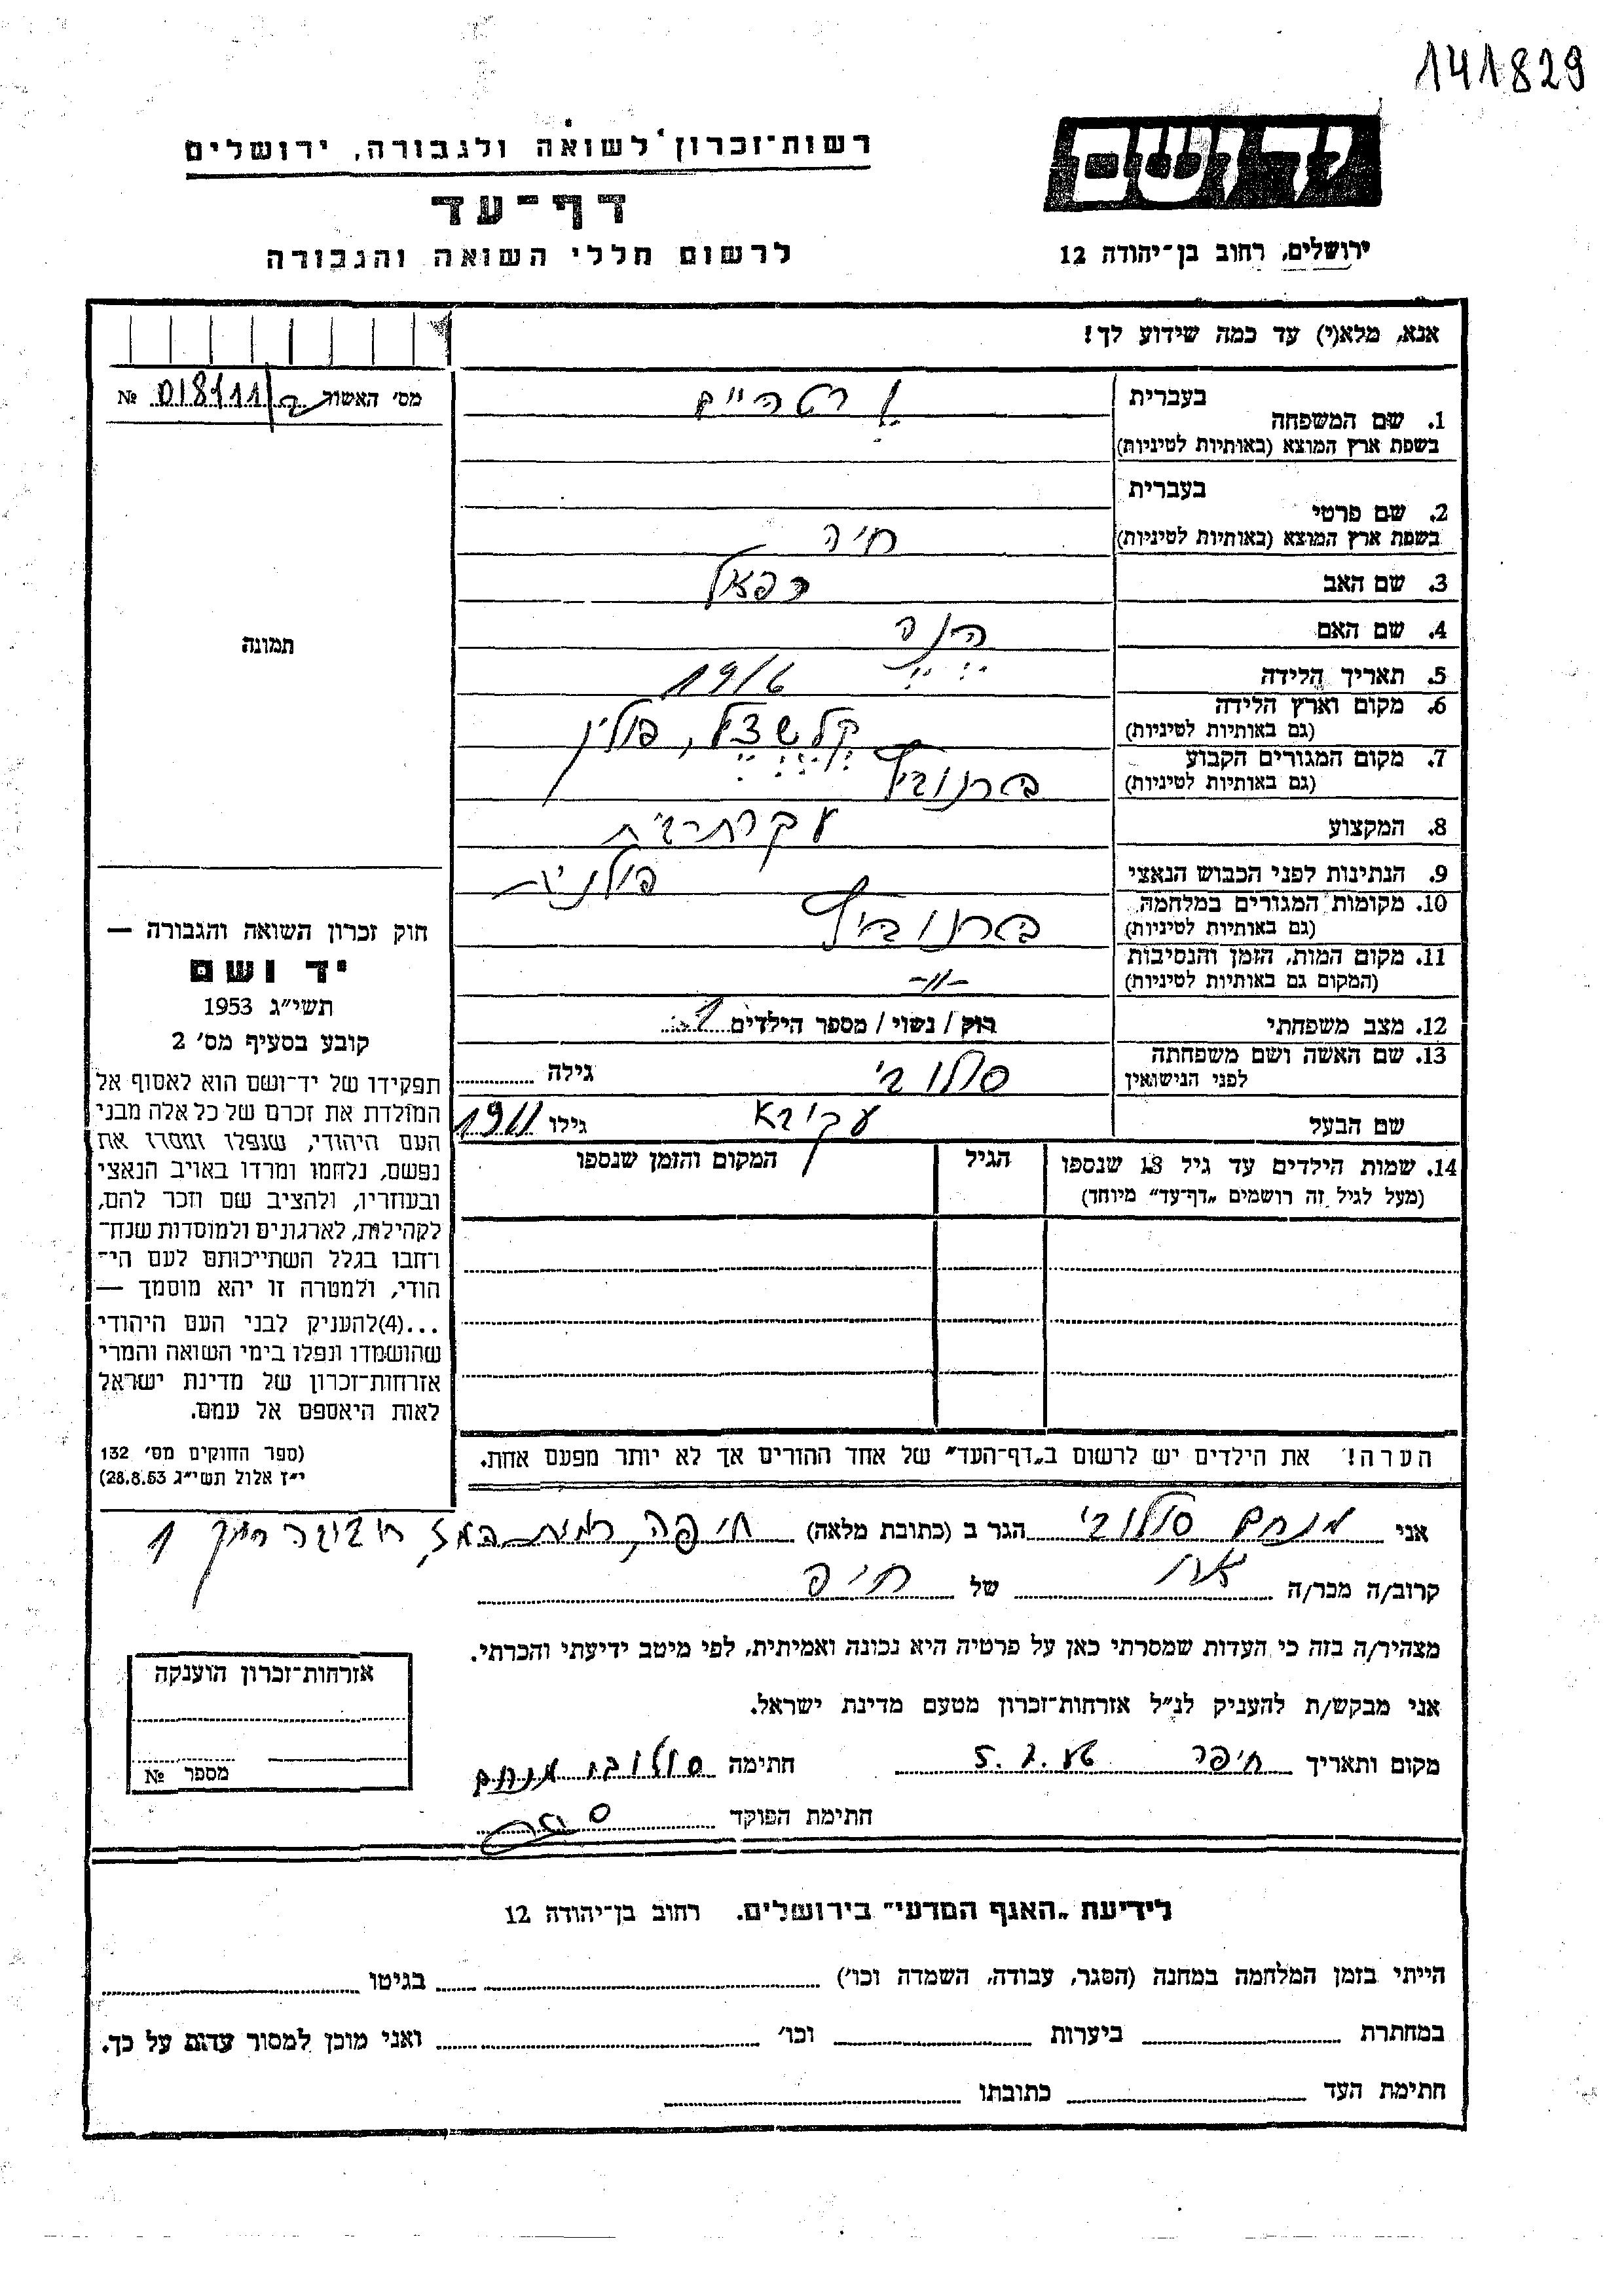 141829
יד ושם
רשות־זכרון לשואה ולגבורה, ירושלים
דף־עד
לרשום חללי השואה והגבורה
ירושלים, רחוב בן־יהודה 12
אנא, מלא(י) עד כמה שידוע לך!
מס' האשור № 018111
1. שם המשפחה
בעברית
בשפת ארץ המוצא (באותיות לטיניות)
2. שם פרטי
בעברית
בשפת ארץ המוצא (באותיות לטיניות) חיה
3. שם האב רפאל
4. שם האם
5. תאריך הלידה
6. מקום וארץ הלידה פולין
(גם באותיות לטיניות)
7. מקום המגורים הקבוע ברנוביץ
(גם באותיות לטיניות)
8. המקצוע עקרת בית
9. הנתינות לפני הכבוש הנאצי פולנית
10. מקומות המגורים במלחמה ברנוביץ
(גם באותיות לטיניות)
11. מקום המות, הזמן והנסיבות -״-
(המקום גם באותיות לטיניות)
12. מצב משפחתי רוק / נשוי / מספר הילדים 1
13. שם האשה ושם משפחתה סולובי גילה
לפני הנישואין
שם הבעל עקיבא גילו 1911
14. שמות הילדים עד גיל 18 שנספו הגיל המקום והזמן שנספו
(מעל לגיל זה רושמים „דף־עד״ מיוחד)
הערה! את הילדים יש לרשום ב„דף־העד״ של אחד ההורים אך לא יותר מפעם אחת.
תמונה
חוק זכרון השואה והגבורה —
יד ושם
תשי״ג 1953
קובע בסעיף מס' 2
תפקידו של יד־ושם הוא לאסוף אל
המולדת את זכרם של כל אלה מבני
העם היהודי, שנפלו ומסרו את
נפשם, נלחמו ומרדו באויב הנאצי
ובעוזריו, ולהציב שם וזכר להם,
לקהילות, לארגונים ולמוסדות שנח־
רחבו בגלל השתייכותם לעם הי־
הודי, ולמטרה זו יהא מוסמך —
...(4)להעניק לבני העם היהודי
שהושמדו ונפלו בימי השואה והמרי
אזרחות־זכרון של מדינת ישראל
לאות היאספם אל עמם.
(ספר החוקים מס' 132
י״ז אלול תשי״ג 28.8.53)
אני מנחם סולובי הגר ב (כתובת מלאה) חיפה, רמת 1
קרוב/ה מכר/ה אח של חיה
מצהיר/ה בזה כי העדות שמסרתי כאן על פרטיה היא נכונה ואמיתית, לפי מיטב ידיעתי והכרתי.
אני מבקש/ת להעניק לנ״ל אזרחות־זכרון מטעם מדינת ישראל.
מקום ותאריך חיפה חתימה סולובי מנחם
חתימת הפוקד
אזרחות־זכרון הוענקה
מספר №
לידיעת „האגף המדעי״ בירושלים. רחוב בן־יהודה 12
הייתי בזמן המלחמה במחנה (הסגר, עבודה, השמדה וכו') בגיטו
במחתרת ביערות וכו' ואני מוכן למסור עדות על כך.
חתימת העד כתובתו